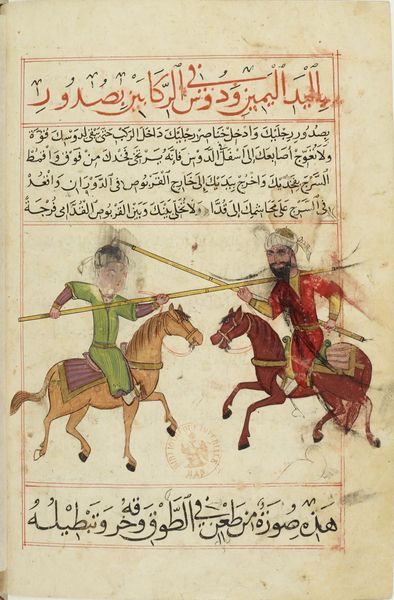 باليد اليمين ودوس في الركابين بصدور
بصدور رجليك وادخل خناصر رجليك داخل الركب حتى يبقى لدوسك قوة
ولا تعوج أصابعك إلى أسفل الدوس فإنه يرتخي فخدك من فوق واقبط
السرج بفخديك واخرج بيديك إلى خارج القربوص في الدوران واقعد
في السرج على محاشمك إلى قدام ولا تخلي بينك وبين القربوص القدامي فرجة
هذه صورة من طعن في الطوق وخرقه وتبطيله